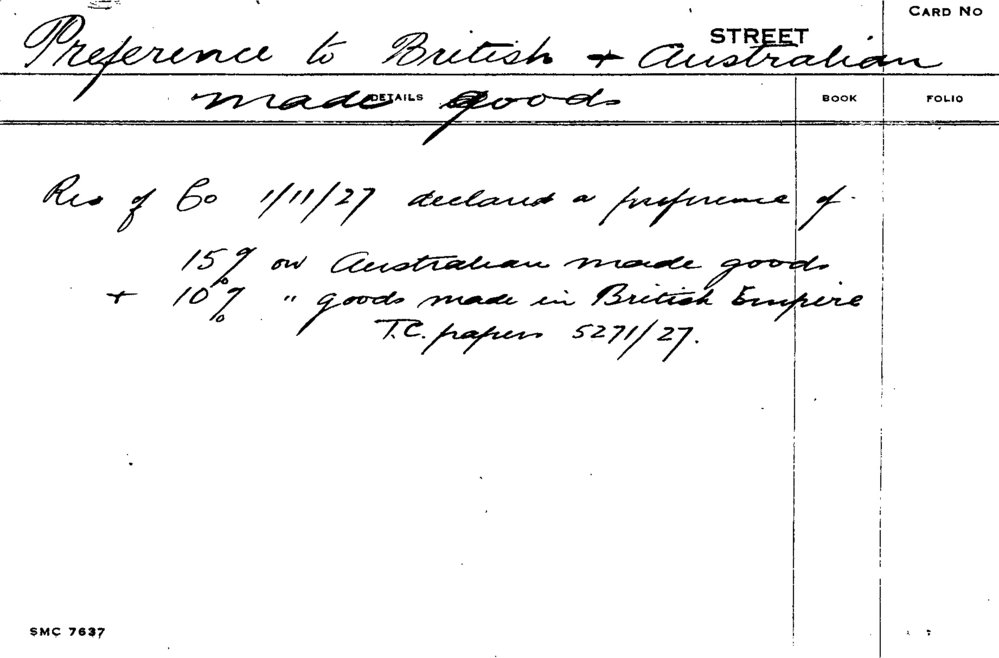 CARD NO
STREET
Preference to British + Australian
made goods
DETAILS
BOOK
FOLIO
Res of Co 1/11/27 declared a preference of
15% on Australian made goods
+ 10% " goods made in British Empire
T.C. papers 5271/27.
SMC 7637